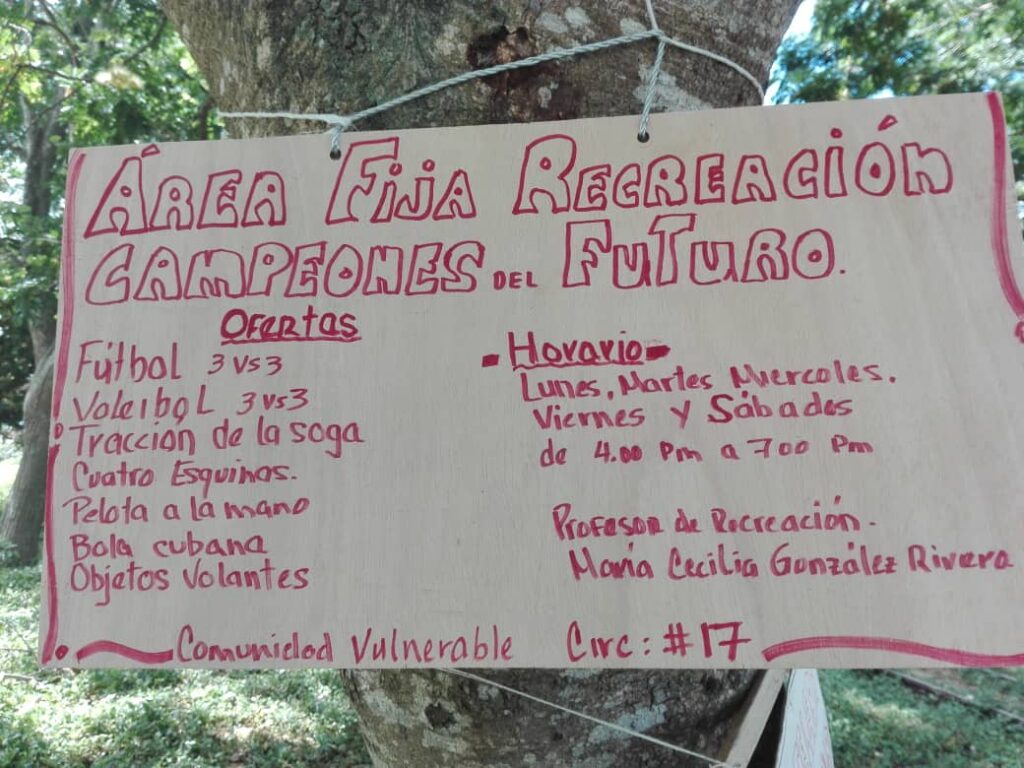 ÁREA FIJA RECREACIÓN
CAMPEONES DEL FUTURO.
OFERTAS
Fútbol 3 vs 3
Voleibol 3 vs 3
Tracción de la soga
Cuatro Esquinas.
Pelota a la mano
Bola cubana
Objetos Volantes
- Horario -
Lunes, Martes Miercoles.
Viernes y Sábados
de 4.00 Pm a 700 Pm
Profesor de Recreación.
María Cecilia González Rivera
Comunidad Vulnerable Circ: #17